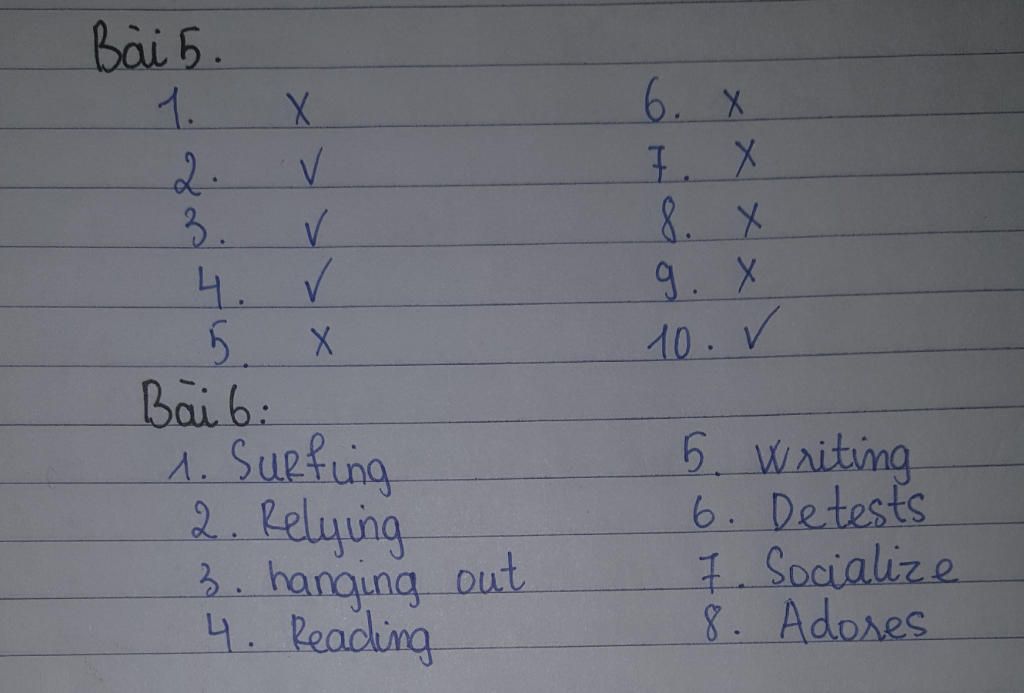 Bài 5.
1. X 6. X
2. ✓ 7. X
3. ✓ 8. X
4. ✓ 9. X
5. X 10. ✓
Bài 6:
1. Surfing 5. Writing
2. Relying 6. Detests
3. hanging out 7. Socialize
4. Reading 8. Adores